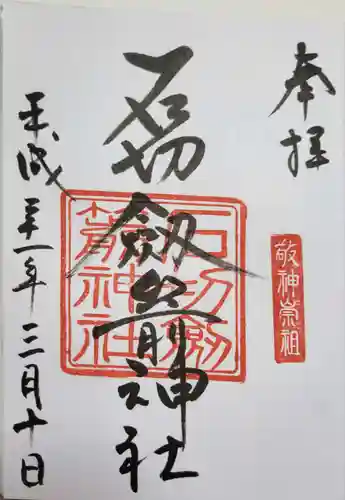 奉拝
敬神崇祖
石切劔箭神社
石切劔箭神社
平成三十一年三月十日